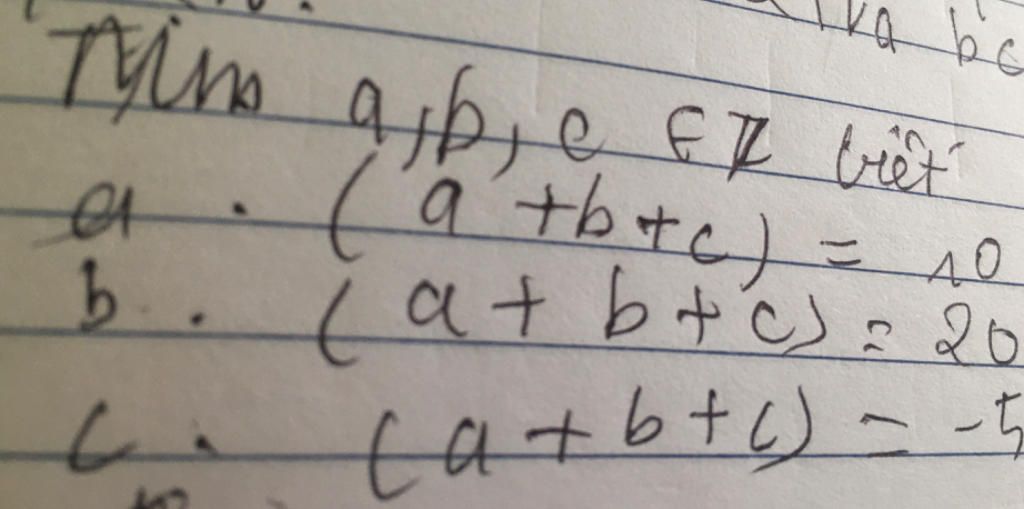 ka bc
Tìm a, b, c ∈ Z biết
a . (a + b + c) = 10
b . (a + b + c) = 20
c . (a + b + c) = -5